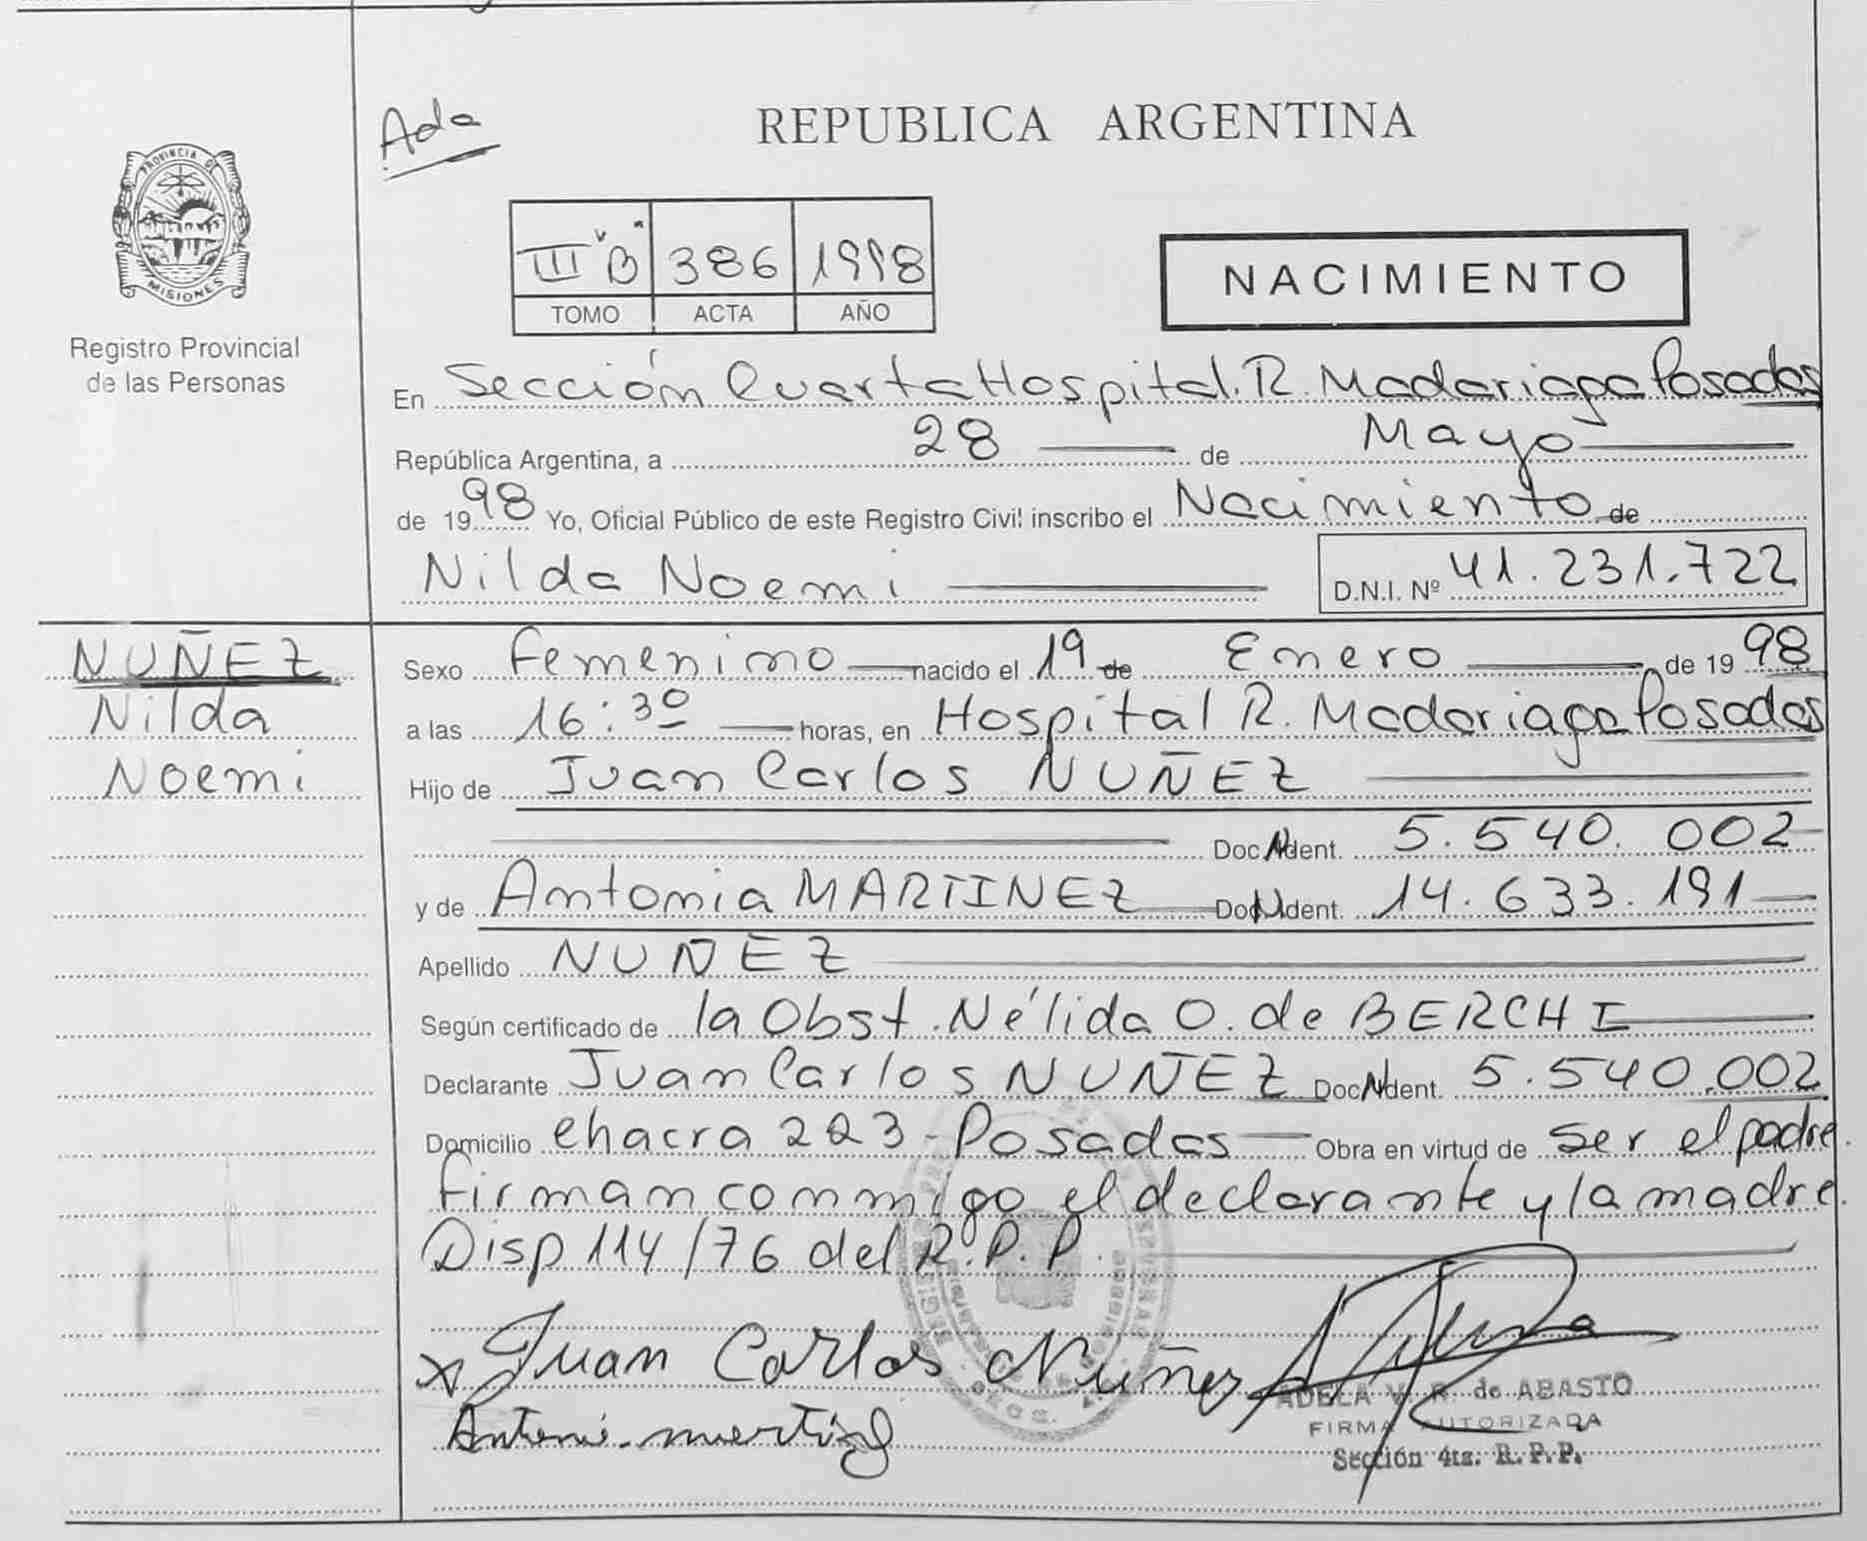 Ada
REPUBLICA ARGENTINA
PROVINCIA DE
MISIONES
Registro Provincial
de las Personas
III "B" 386 1998
TOMO ACTA AÑO
NACIMIENTO
En Sección Cuarta Hospital. R. Madariaga Posadas
República Argentina, a 28 de Mayo
de 1998 Yo, Oficial Público de este Registro Civil inscribo el Nacimiento de
Nilda Noemi D.N.I. Nº 41.231.722
NUÑEZ
Nilda
Noemi
Sexo Femenino nacido el 19 de Enero de 1998
a las 16:30 horas, en Hospital R. Madariaga Posadas
Hijo de Juan Carlos NUÑEZ
Doc. Ident. 5.540.002
y de Antonia MARTINEZ Doc. Ident. 14.633.191
Apellido NUÑEZ
Según certificado de la Obst. Nélida O. de BERCHI
Declarante Juan Carlos NUÑEZ Doc. Ident. 5.540.002
Domicilio chacra 223 - Posadas Obra en virtud de ser el padre.
Firman conmigo el declarante y la madre.
Disp 114/76 del R.P.P.
x Juan Carlos Nuñez
ADELA V. R. de ABASTO
FIRMA AUTORIZADA
Sección 4ta. R.P.P.